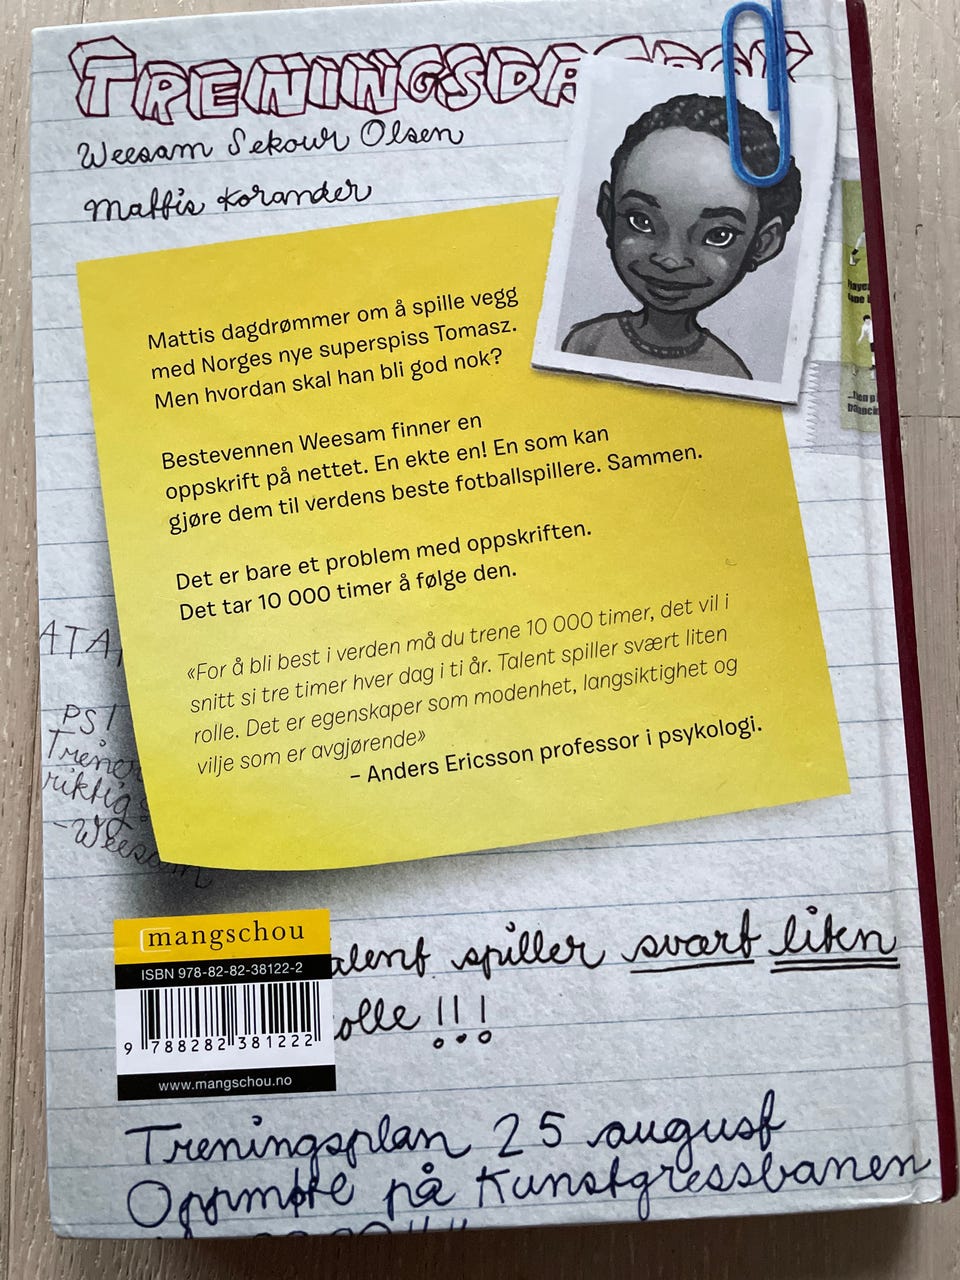 TRENINGSDA
Weesam Sekouw Olsen
Mattis Korander
Mattis dagdrømmer om å spille vegg
med Norges nye superspiss Tomasz.
Men hvordan skal han bli god nok?
Bestevennen Weesam finner en
oppskrift på nettet. En ekte en! En som kan
gjøre dem til verdens beste fotballspillere. Sammen.
Det er bare et problem med oppskriften.
Det tar 10 000 timer å følge den.
«For å bli best i verden må du trene 10 000 timer, det vil i
snitt si tre timer hver dag i ti år. Talent spiller svært liten
rolle. Det er egenskaper som modenhet, langsiktighet og
vilje som er avgjørende»
– Anders Ericsson professor i psykologi.
ATA
PS!
Trener
riktig
- Weesam
mangschou
ISBN 978-82-82-38122-2
9 788282 381222
www.mangschou.no
alent spiller svært liten
olle!!!
Treningsplan 25 august
Oppmøte på Kunstgressbanen